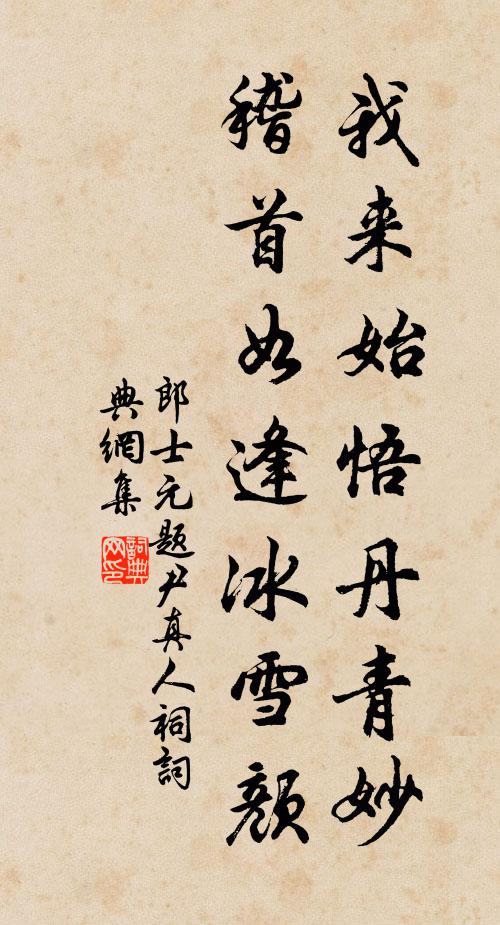 我来始悟丹青妙
稽首如逢冰雪顔
郎士元題尹真人祠詞
典網集
詞典
网印